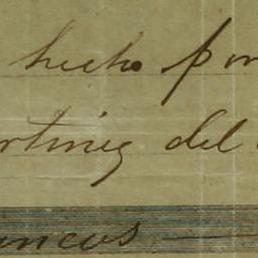 hecho por
rtinez del
uncos